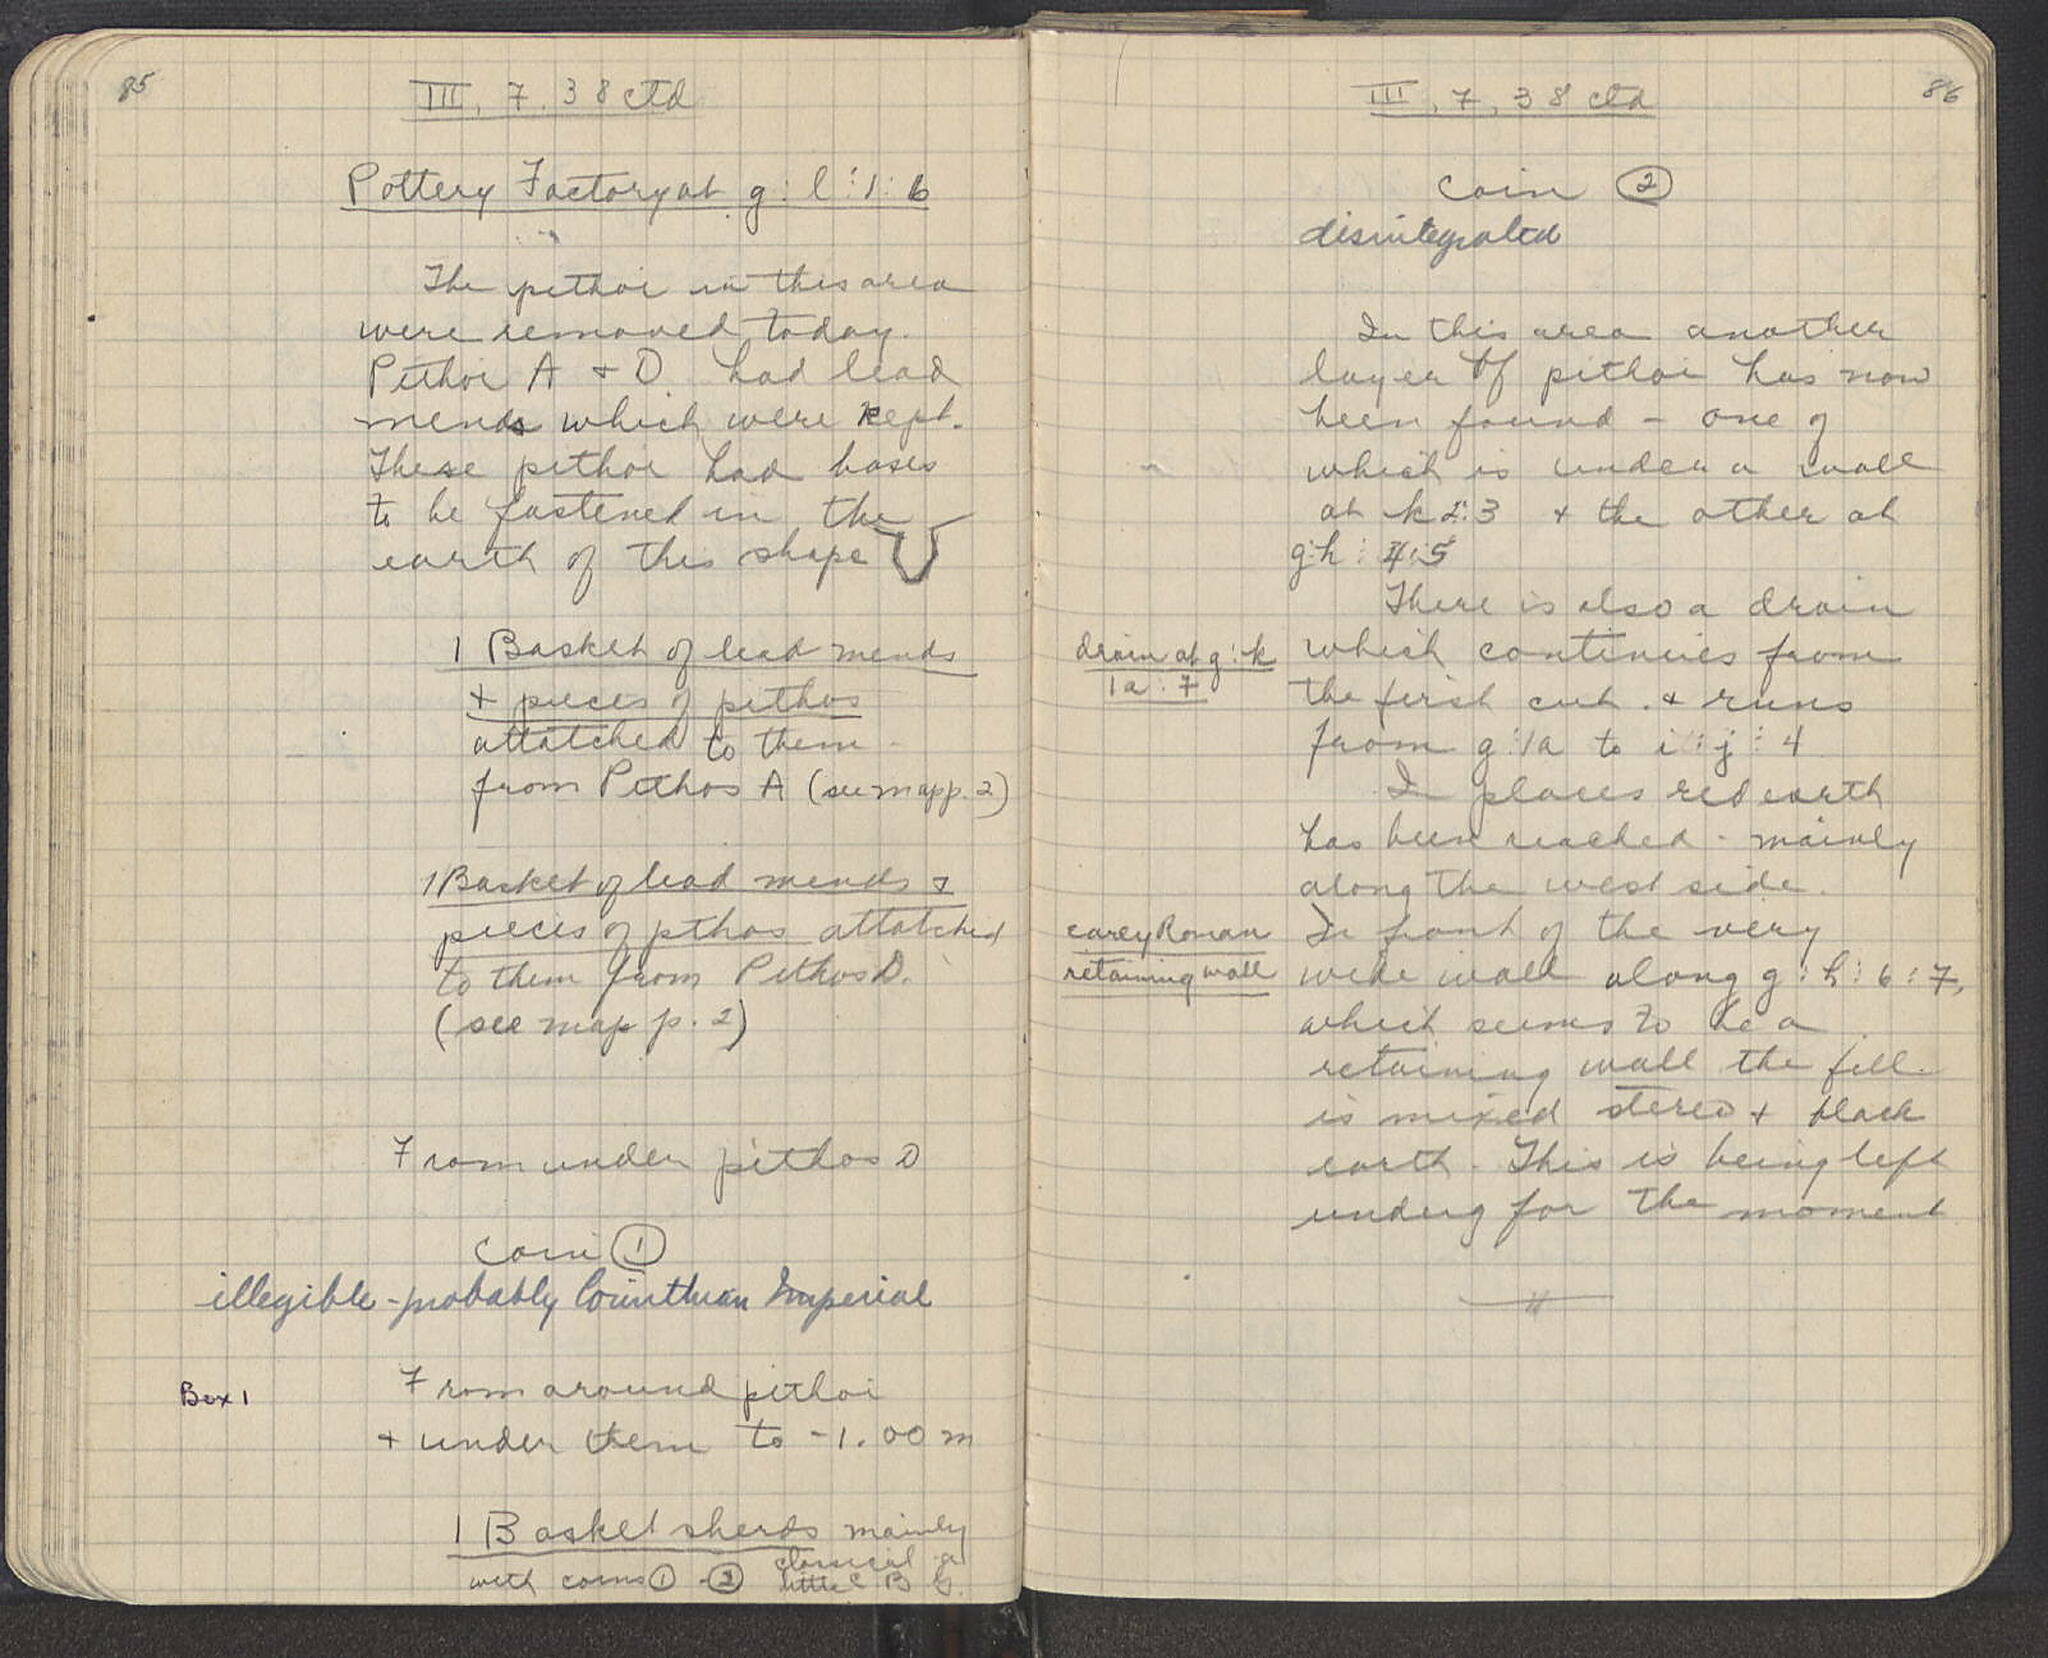 85
III, 7, 38 ctd
Pottery Factory at g : l : 1 : 6
The pithoi in this area
were removed today.
Pithoi A + D had lead
mends which were kept.
These pithoi had bases
to be fastened in the
earth of this shape
1 Basket of lead mends
+ pieces of pithos
attatched to them
from Pithos A (see map p. 2)
1 Basket of lead mends +
pieces of pthos attatched
to them from Pithos D.
(see map p. 2)
From under pithos D
Coin 1
illegible - probably Corinthian Imperial
Box 1
From around pithoi
+ under them to -1.00 m
1 Basket sherds mainly
classical a
with coins 1 - 2 little B G.
86
III, 7, 38 ctd
Coin 2
disintegrated
In this area another
layer of pithoi has now
been found - one of
which is under a wall
at k 2:3 + the other at
g:h : 4:5
There is also a drain
drain at g : k
1a : 7
which continues from
the first cut . + runs
from g : 1a to i : j : 4
In places red earth
has been reached - mainly
along the west side.
early Roman
retaining wall
In front of the very
wide wall along g : h : 6 : 7,
which seems to be a
retaining wall the fill
is mixed stereo + black
earth. This is being left
undug for the moment